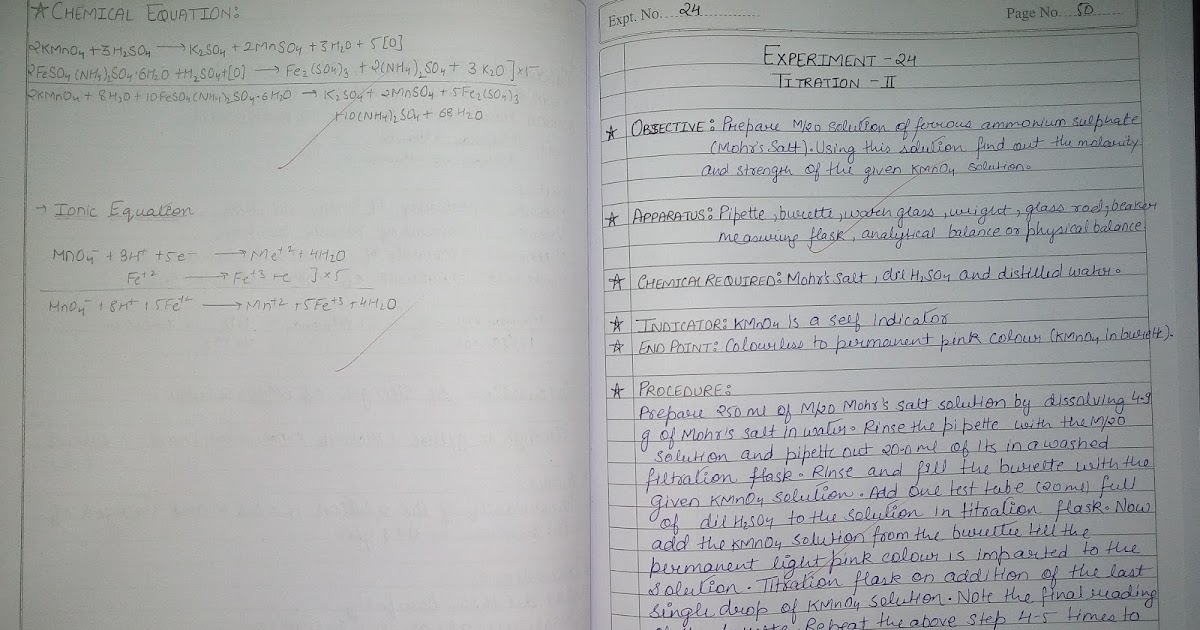 ★ CHEMICAL EQUATION:
2KMnO₄ + 3H₂SO₄ ⟶ K₂SO₄ + 2MnSO₄ + 3H₂O + 5[O]
2FeSO₄(NH₄)₂SO₄·6H₂O + H₂SO₄ + [O] ⟶ Fe₂(SO₄)₃ + 2(NH₄)₂SO₄ + 3K₂O ] × 5
2KMnO₄ + 8H₂O + 10FeSO₄(NH₄)₂SO₄·6H₂O → K₂SO₄ + 2MnSO₄ + 5Fe₂(SO₄)₃
+10(NH₄)₂SO₄ + 68H₂O
→ Ionic Equation
MnO₄⁻ + 8H⁺ + 5e⁻ ⟶ Me⁺² + 4H₂O
Fe⁺² ⟶ Fe⁺³ + e ] × 5
MnO₄⁻ + 8H⁺ + 5Fe⁺² ⟶ Mn⁺² + 5Fe⁺³ + 4H₂O
Expt. No. 24 Page No. 50
EXPERIMENT - 24
TITRATION - II
★ OBJECTIVE: Prepare M/20 solution of ferrous ammonium sulphate
(Mohr's Salt). Using this solution find out the molarity
and strength of the given KMnO₄ solution.
★ APPARATUS: Pipette, burette, watch glass, weight, glass rod, beaker
measuring flask, analytical balance or physical balance
★ CHEMICAL REQUIRED: Mohr's Salt, dil H₂SO₄ and distilled water.
★ INDICATOR: KMnO₄ is a self indicator
★ END POINT: Colourless to permanent pink colour (KMnO₄ in burett).
★ PROCEDURE:
Prepare 250 ml of M/20 Mohr's salt solution by dissolving 4.9
g of Mohr's salt in water. Rinse the pipette with the M/20
solution and pipette out 20.0 ml of its in a washed
filtration flask. Rinse and fill the burette with the
given KMnO₄ solution. Add one test tube (20ml) full
of dil H₂SO₄ to the solution in titration flask. Now
add the KMnO₄ solution from the burette till the
permanent light pink colour is imparted to the
solution. Titration flask on addition of the last
single drop of KMnO₄ solution. Note the final reading
Repeat the above step 4-5 times to